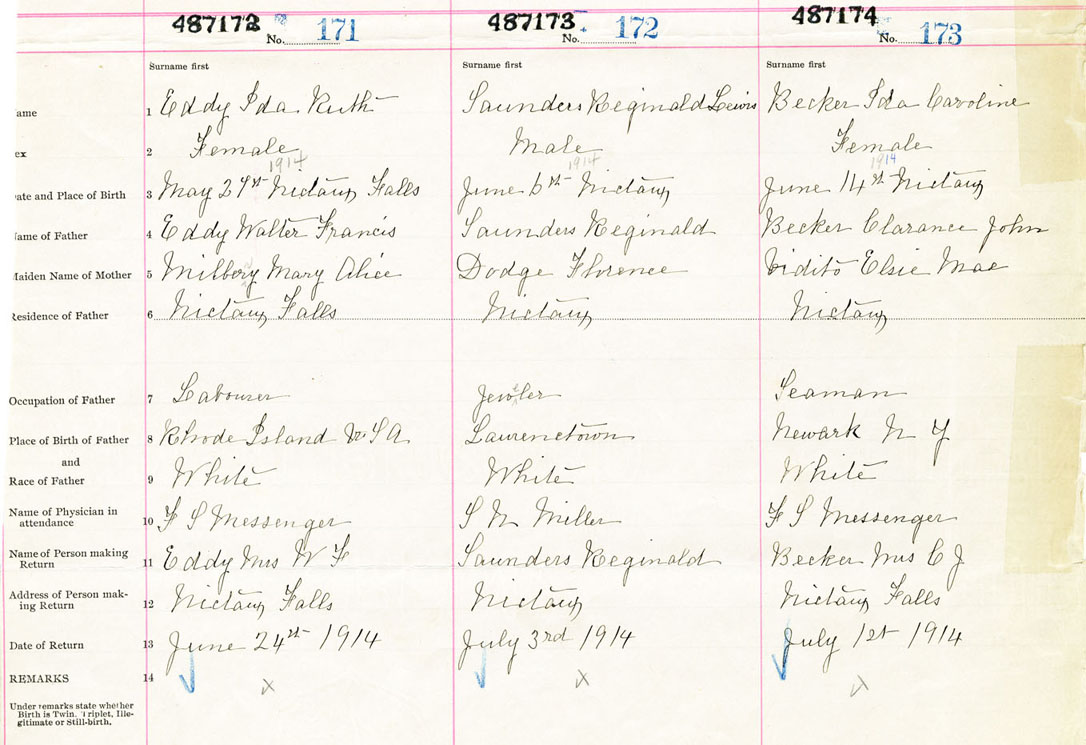 487172 487173 487174
No. 171 No. 172 No. 173
Surname first Surname first Surname first
ame 1 Eddy Ida Ruth Saunders Reginald Lewis Becker Ida Caroline
ex 2 Female Male Female
1914 1914 1914
ate and Place of Birth 3 May 29th Nictaux Falls June 6th Nictaux June 14th Nictaux
ame of Father 4 Eddy Walter Francis Saunders Reginald Becker Clarance John
Maiden Name of Mother 5 Milbery Mary Alice Dodge Florence Vidito Elsie Mae
Residence of Father 6 Nictaux Falls Nictaux Nictaux
Occupation of Father 7 Labourer Jeweler Seaman
Place of Birth of Father 8 Rhode Island U S A Laurencetown Newark N Y
and
Race of Father 9 White White White
Name of Physician in
attendance 10 F S Messenger S N Miller F S Messenger
Name of Person making
Return 11 Eddy Mrs W F Saunders Reginald Becker Mrs C J
Address of Person mak-
ing Return 12 Nictaux Falls Nictaux Nictaux Falls
Date of Return 13 June 24th 1914 July 3rd 1914 July 1st 1914
REMARKS 14
Under remarks state whether
Birth is Twin. Triplet, Ille-
gitimate or Still-birth.